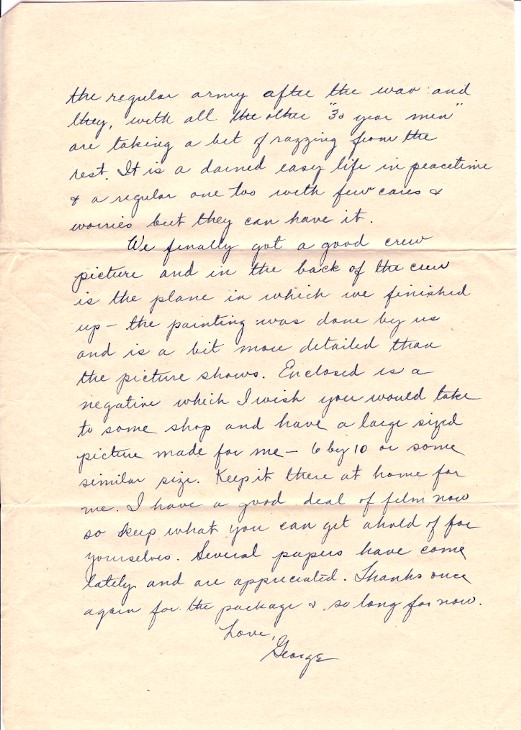 the regular army after the war and
they, with all the other "30 year men"
are taking a bit of razzing from the
rest. It is a darned easy life in peacetime
& a regular one too with few cares &
worries but they can have it.
We finally got a good crew
picture and in the back of the crew
is the plane in which we finished
up - the painting was done by us
and is a bit more detailed than
the picture shows. Enclosed is a
negative which I wish you would take
to some shop and have a large sized
picture made for me - 6 by 10 or some
similar size. Keep it there at home for
me. I have a good deal of film now
so keep what you can get ahold of for
yourselves. Several papers have come
lately and are appreciated. Thanks once
again for the package & so long for now.
Love,
George